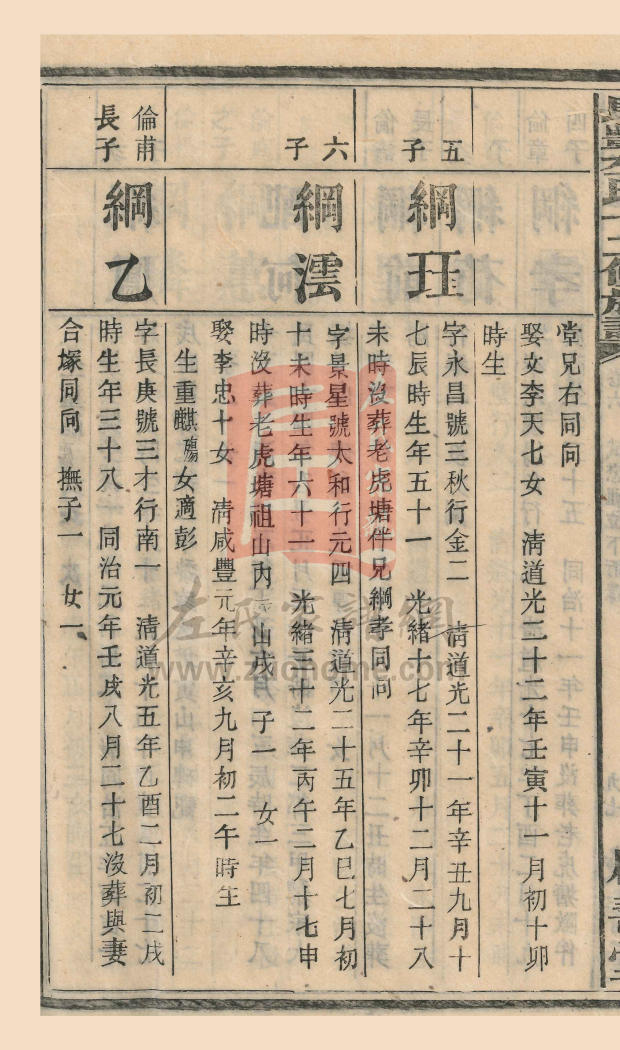 堂兄右同向
娶文李天七女 清道光二十二年壬寅十一月初十卯
時生
五子
綱玨
字永昌號三秋行金二 清道光二十一年辛丑九月十
七辰時生年五十一 光緒十七年辛卯十二月二十八
未時沒葬老虎塘伴兄綱孝同向
六子
綱澐
字景星號太和行元四 清道光二十五年乙巳七月初
十未時生年六十一 光緒三十二年丙午二月十七申
時沒葬老虎塘祖山內 山戌向 子一 女一
娶李忠十女 清咸豐元年辛亥九月初二午時生
生重麒殤女適彭
倫甫
長子
綱乙
字長庚號三才行南一 清道光五年乙酉二月初二戌
時生年三十八 同治元年壬戌八月二十七沒葬與妻
合塚同向 撫子一 女一
左氏家譜網
www.zuohome.com